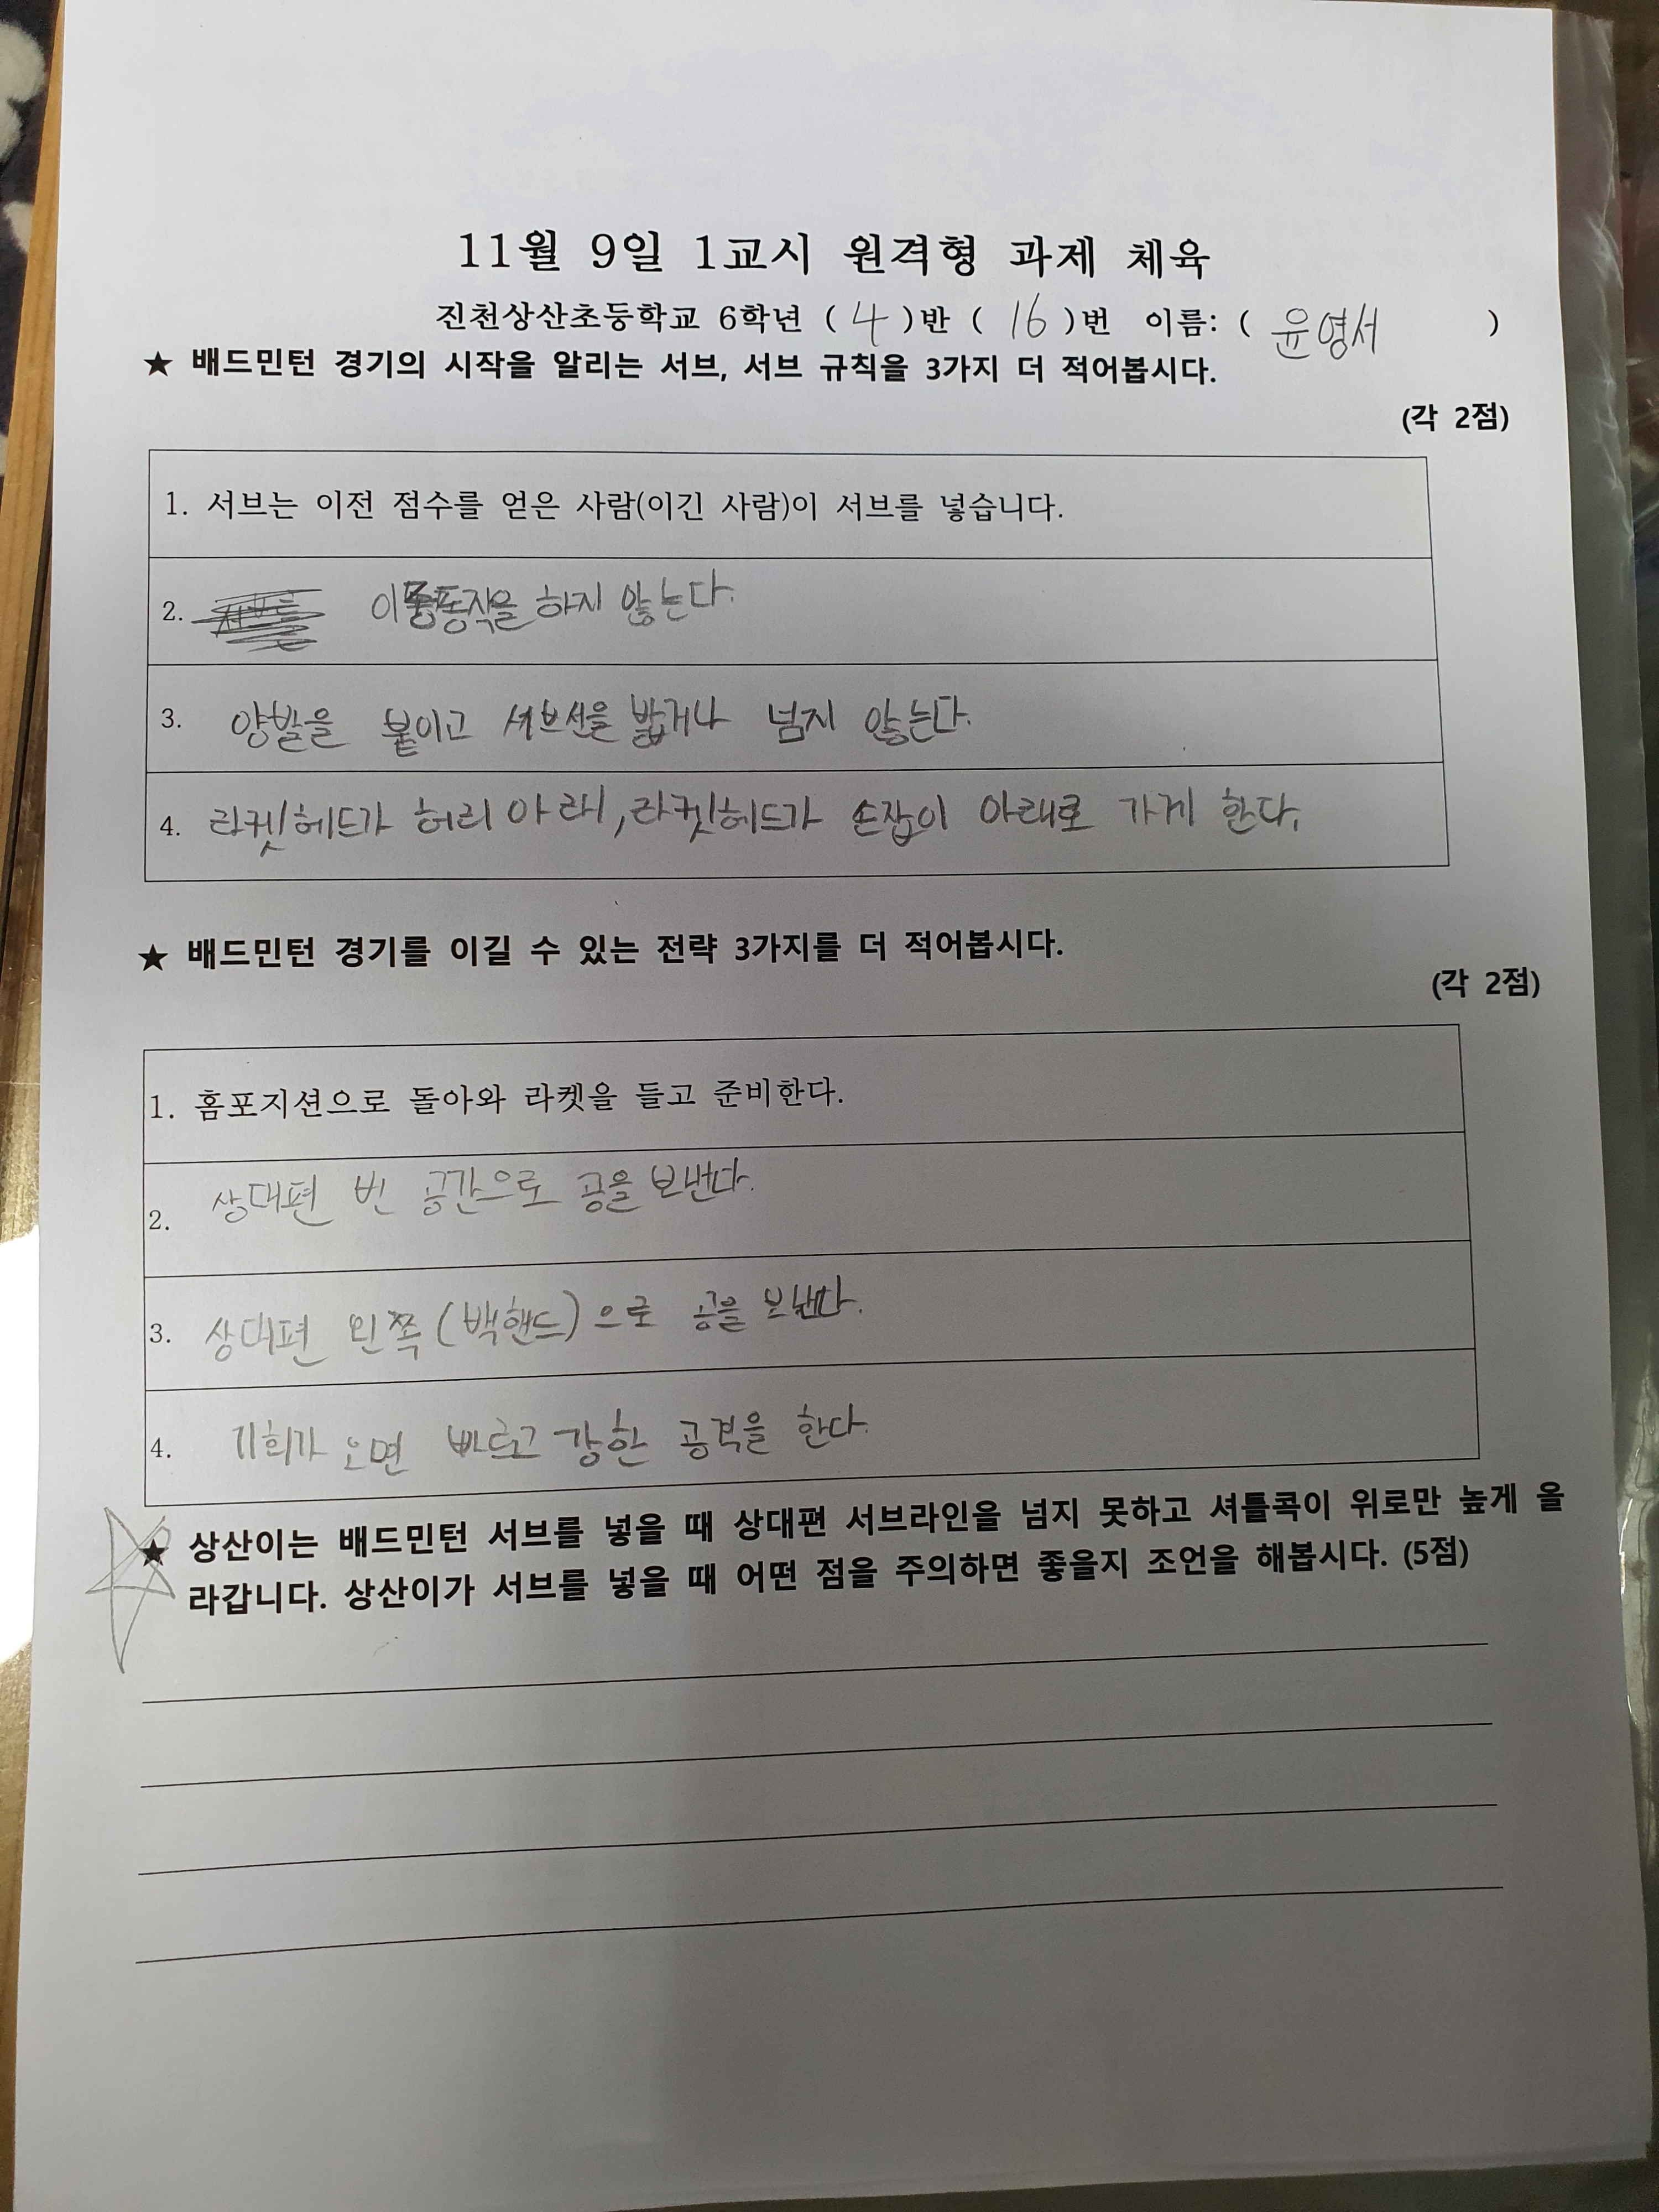 11월 9일 1교시 원격형 과제 체육
진천상산초등학교 6학년 ( 4 )반 ( 16 )번 이름: ( 윤영서 )
★ 배드민턴 경기의 시작을 알리는 서브, 서브 규칙을 3가지 더 적어봅시다.
(각 2점)
1. 서브는 이전 점수를 얻은 사람(이긴 사람)이 서브를 넣습니다.
2. 이중동작을 하지 않는다.
3. 양발을 붙이고 서브선을 밟거나 넘지 않는다.
4. 라켓헤드가 허리 아래, 라켓헤드가 손잡이 아래로 가게 한다.
★ 배드민턴 경기를 이길 수 있는 전략 3가지를 더 적어봅시다.
(각 2점)
1. 홈포지션으로 돌아와 라켓을 들고 준비한다.
2. 상대편 빈 공간으로 공을 보낸다.
3. 상대편 왼쪽(백핸드)으로 공을 보낸다.
4. 기회가 오면 빠르고 강한 공격을 한다.
★ 상산이는 배드민턴 서브를 넣을 때 상대편 서브라인을 넘지 못하고 셔틀콕이 위로만 높게 올
라갑니다. 상산이가 서브를 넣을 때 어떤 점을 주의하면 좋을지 조언을 해봅시다. (5점)